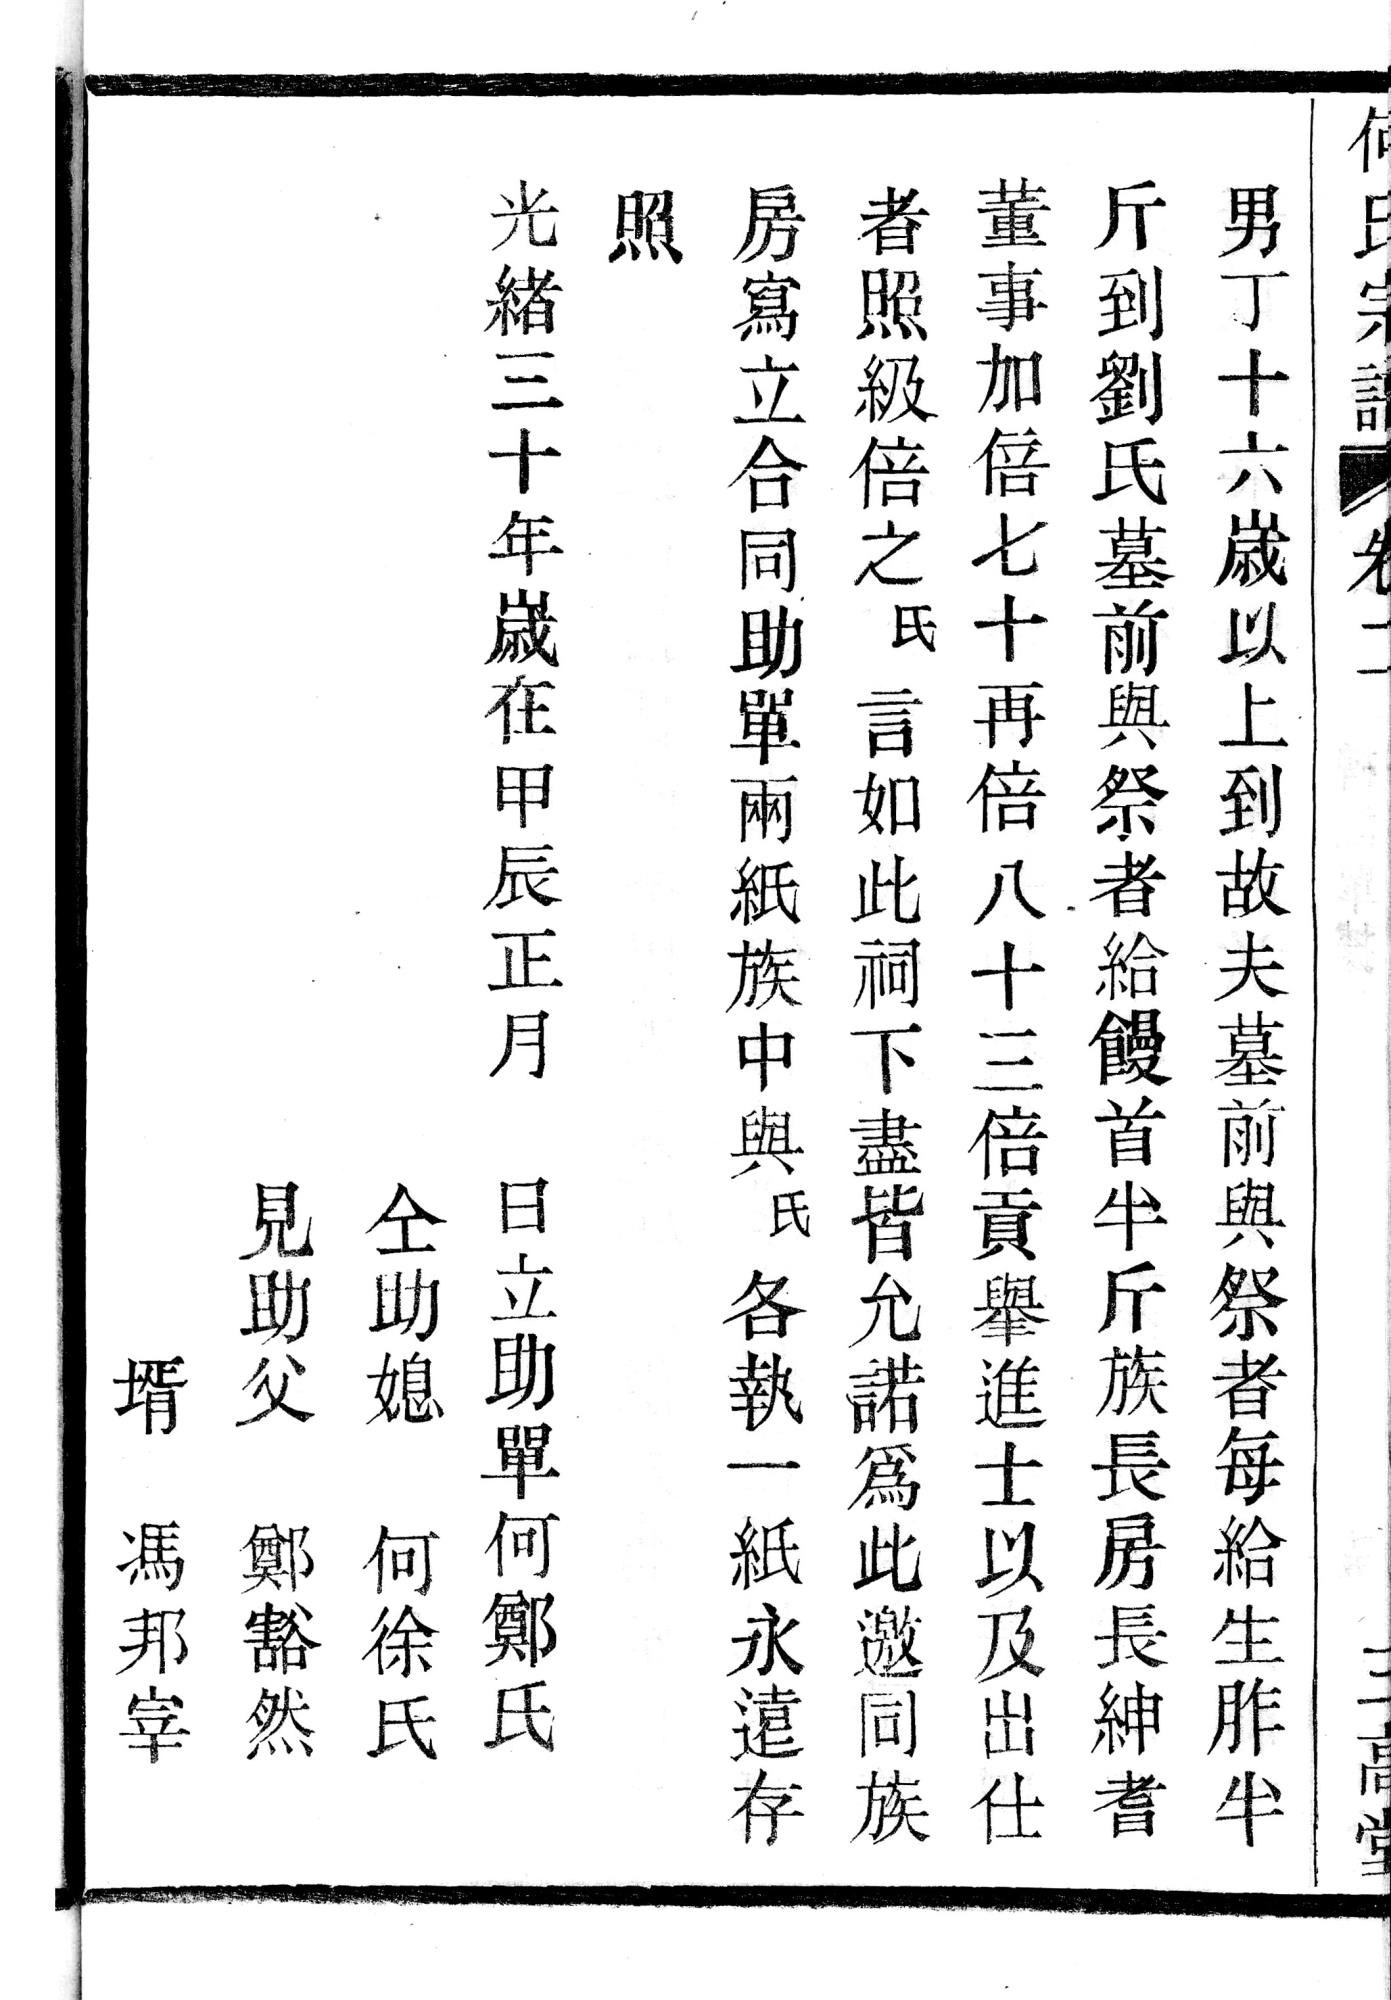 何氏宗譜 卷二 三高堂
男丁十六歲以上到故夫墓前與祭者每給生胙半
斤到劉氏墓前與祭者給饅首半斤族長房長紳耆
董事加倍七十再倍八十三倍貢舉進士以及出仕
者照級倍之氏言如此祠下盡皆允諾爲此邀同族
房寫立合同助單兩紙族中與氏各執一紙永遠存
照
光緒三十年歲在甲辰正月 日立助單何鄭氏
仝助媳 何徐氏
見助父 鄭豁然
壻 馮邦宰